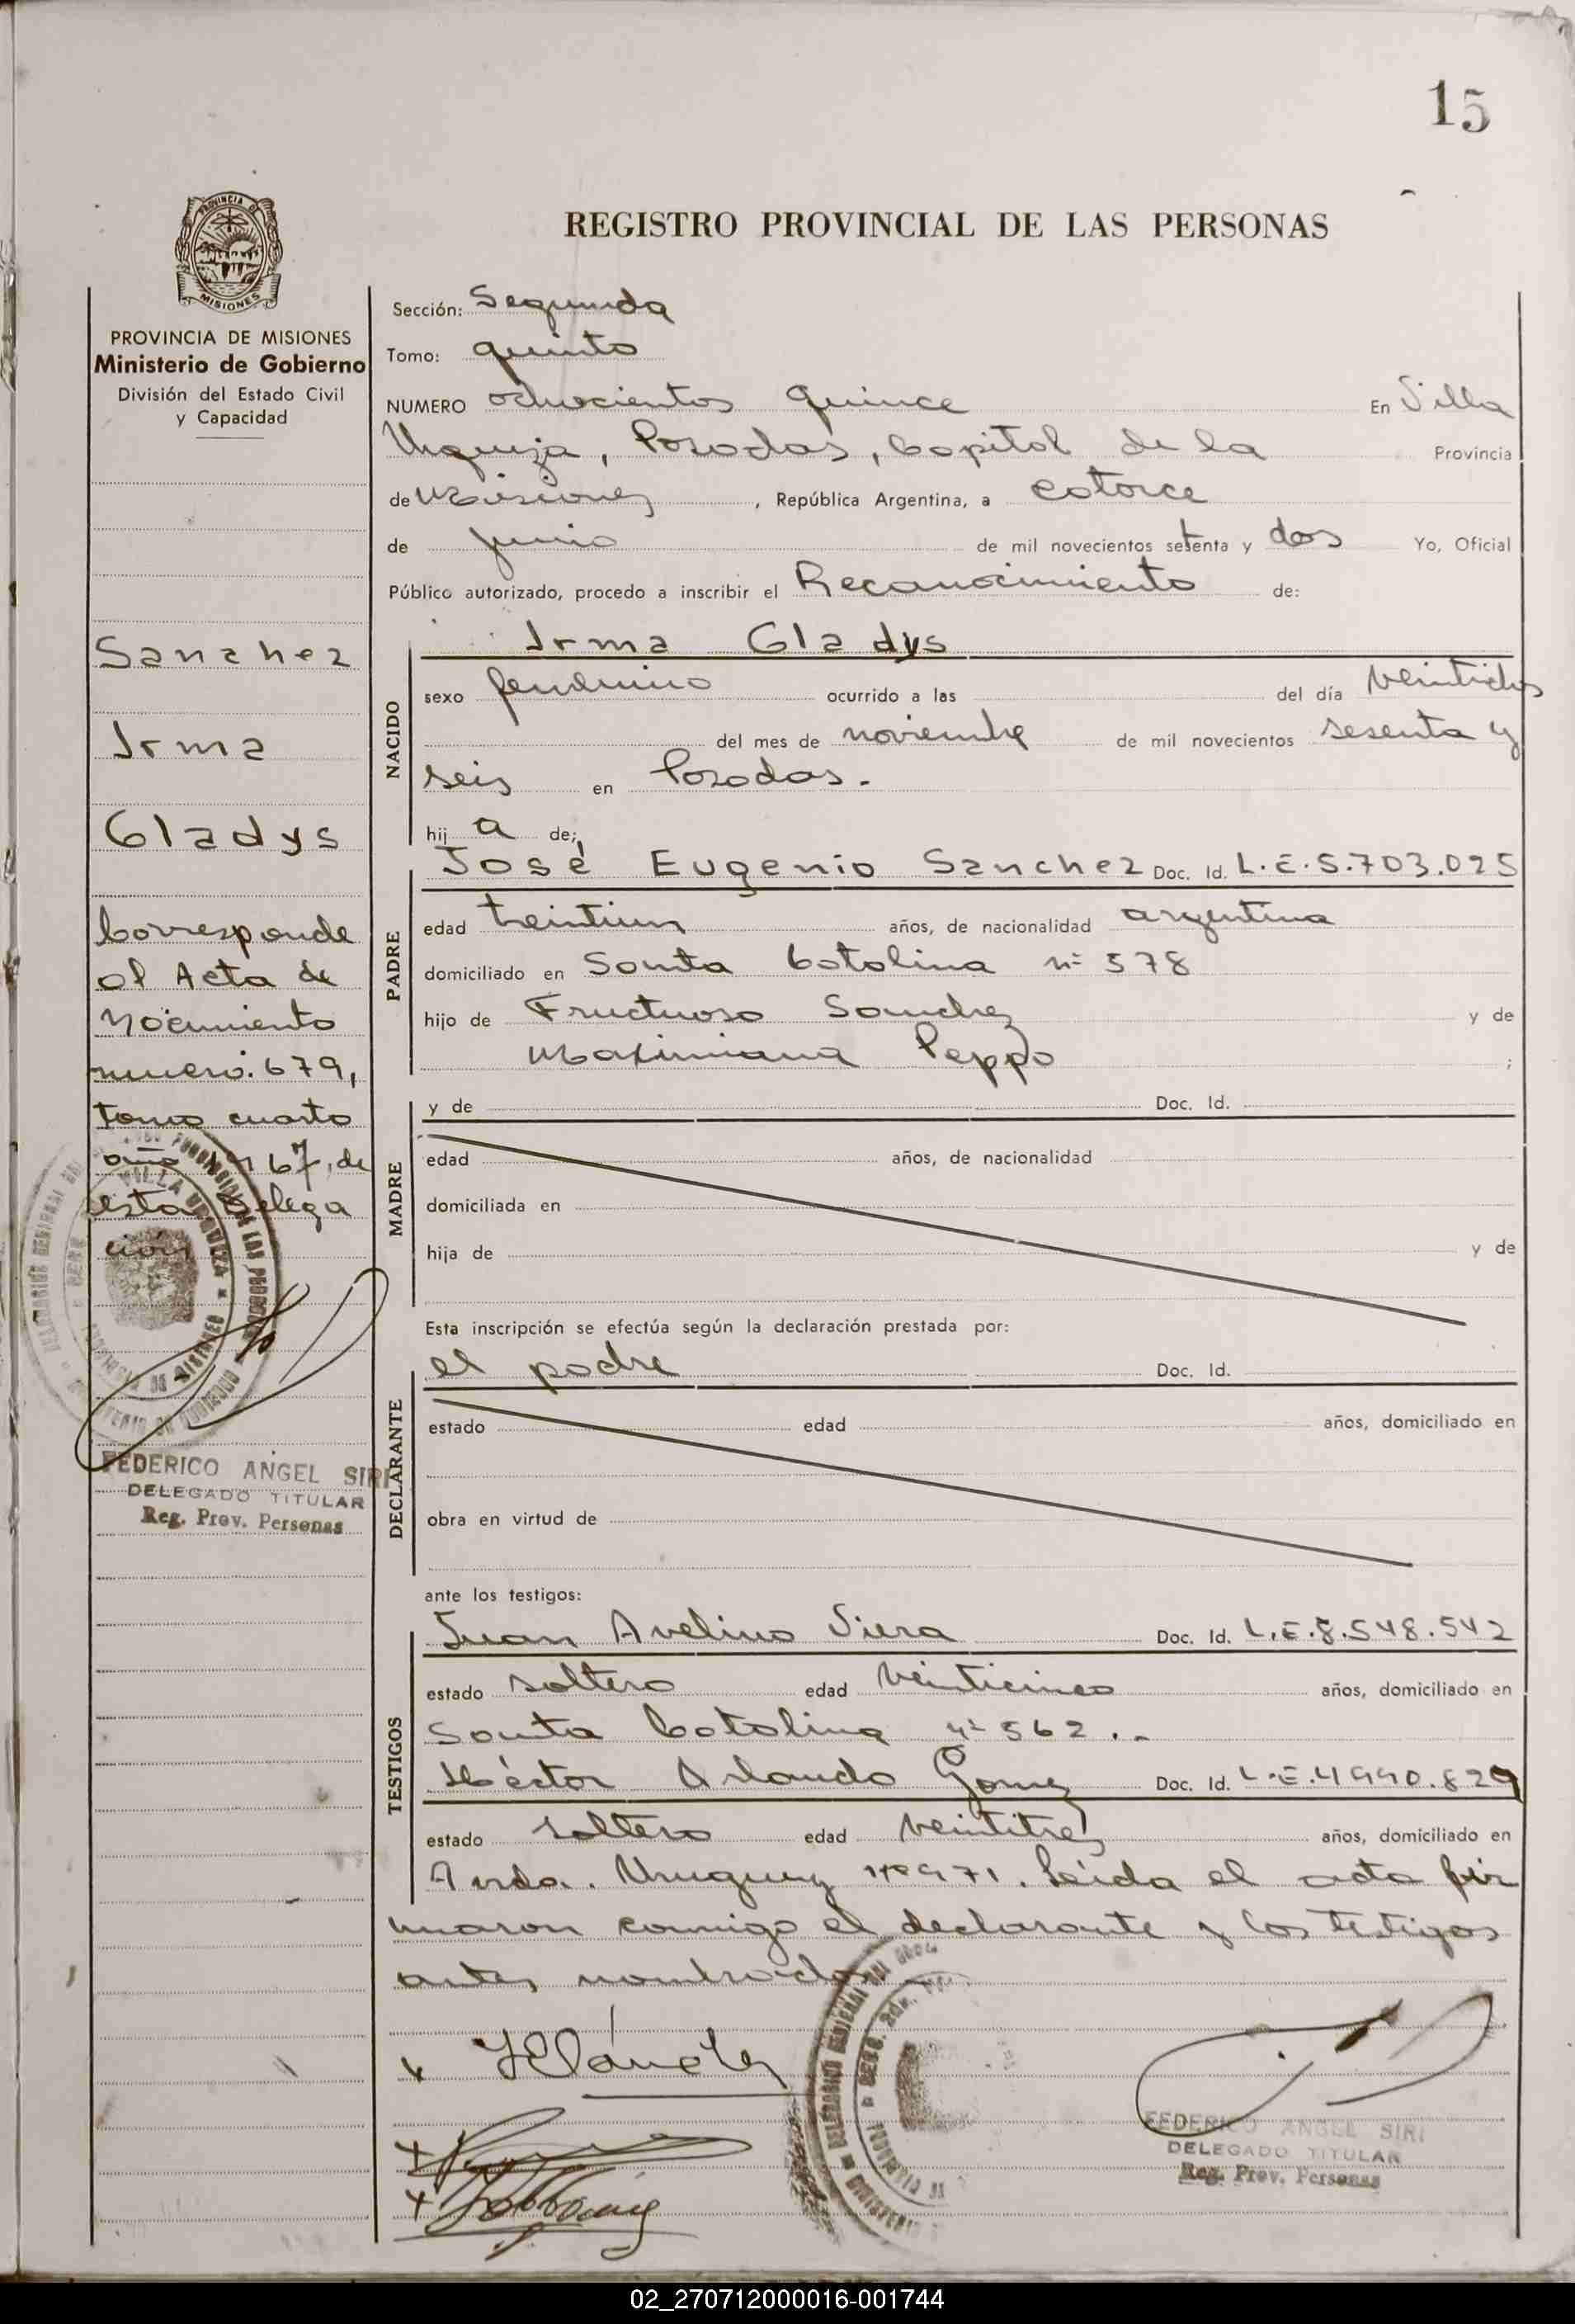 15
REGISTRO PROVINCIAL DE LAS PERSONAS
PROVINCIA DE
MISIONES
PROVINCIA DE MISIONES
Ministerio de Gobierno
División del Estado Civil
y Capacidad
Sanchez
Irma
Gladys
Corresponde
al Acta de
Nacimiento
numero: 679,
tomo cuarto
año 1967, de
esta Delega
ción
FEDERICO ANGEL SIRI
DELEGADO TITULAR
Reg. Prov. Personas
Sección: Segunda
Tomo: quinto
NUMERO ochocientos quince En Villa
Urquiza, Posadas, Capital de la Provincia
de Misiones, República Argentina, a catorce
de junio de mil novecientos setenta y dos Yo, Oficial
Público autorizado, procedo a inscribir el Reconocimiento de:
Irma Gladys
NACIDO
sexo femenino ocurrido a las del día veintidos
del mes de noviembre de mil novecientos sesenta y
seis en Posadas.-
hij a de;
José Eugenio Sanchez Doc. Id. L.E.5.703.025
PADRE
edad treintiun años, de nacionalidad argentina
domiciliado en Santa Catalina nº 578
hijo de Fructuoso Sanchez y de
Maximiana Peppo ;
MADRE
y de Doc. Id.
edad años, de nacionalidad
domiciliada en
hija de y de
Esta inscripción se efectúa según la declaración prestada por:
el padre Doc. Id.
DECLARANTE
estado edad años, domiciliado en
obra en virtud de
ante los testigos:
Juan Avelino Viera Doc. Id. L.E.8.548.542
TESTIGOS
estado soltero edad veinticinco años, domiciliado en
Santa Catalina nº 562.-
Héctor Orlando Gomez Doc. Id. L.E.4990.829
estado soltero edad veintitres años, domiciliado en
Avda. Uruguay nº 971. Leída el acta fir
maron conmigo el declarante y los testigos
antes nombrados
FEDERICO ANGEL SIRI
DELEGADO TITULAR
Reg. Prov. Personas
02_270712000016-001744